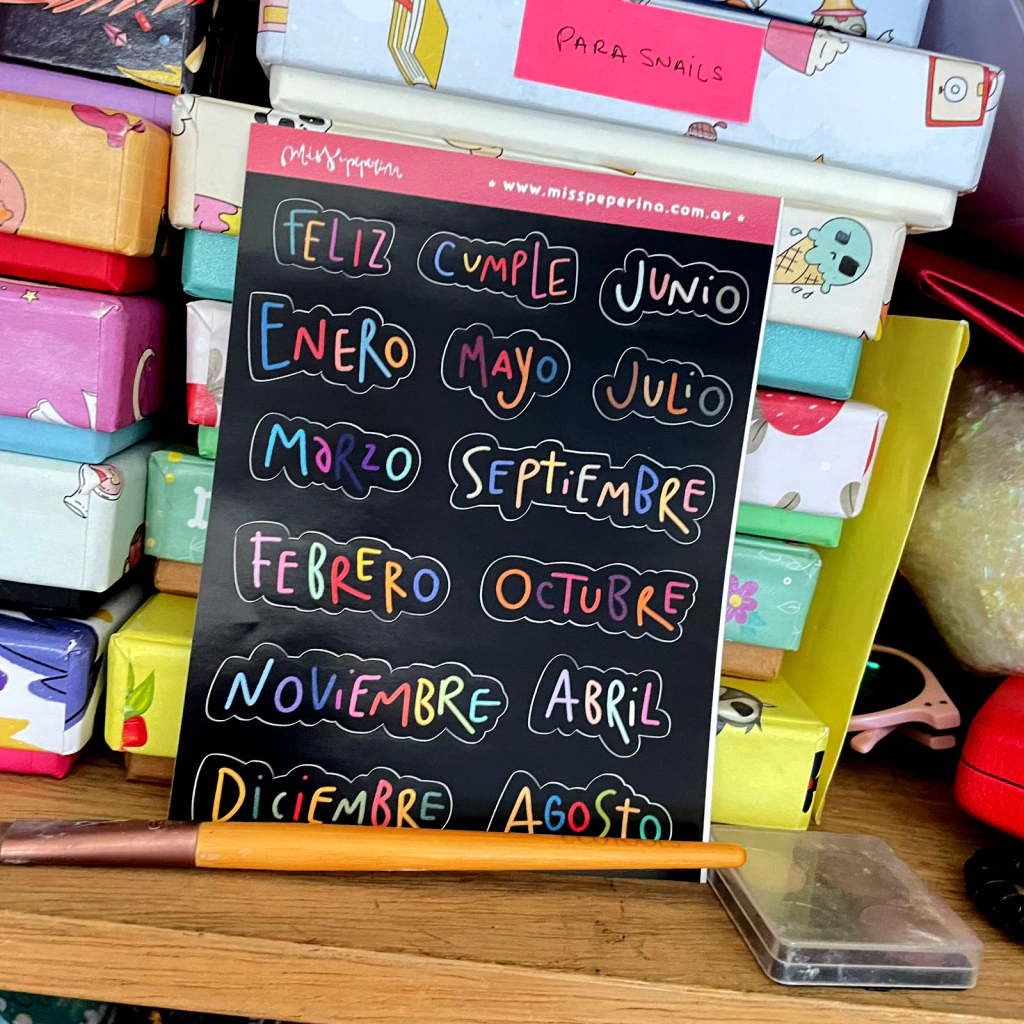 PARA SNAILS
Miss Peperina
★ www.misspeperina.com.ar ★
FELIZ
CUMPLE
JUNiO
ENERO
MAYO
JULiO
MARZO
SEPtiEMBRE
FEBRERO
OCTUBRE
NOViEMBRE
ABRiL
DiCiEMBRE
AGOSto